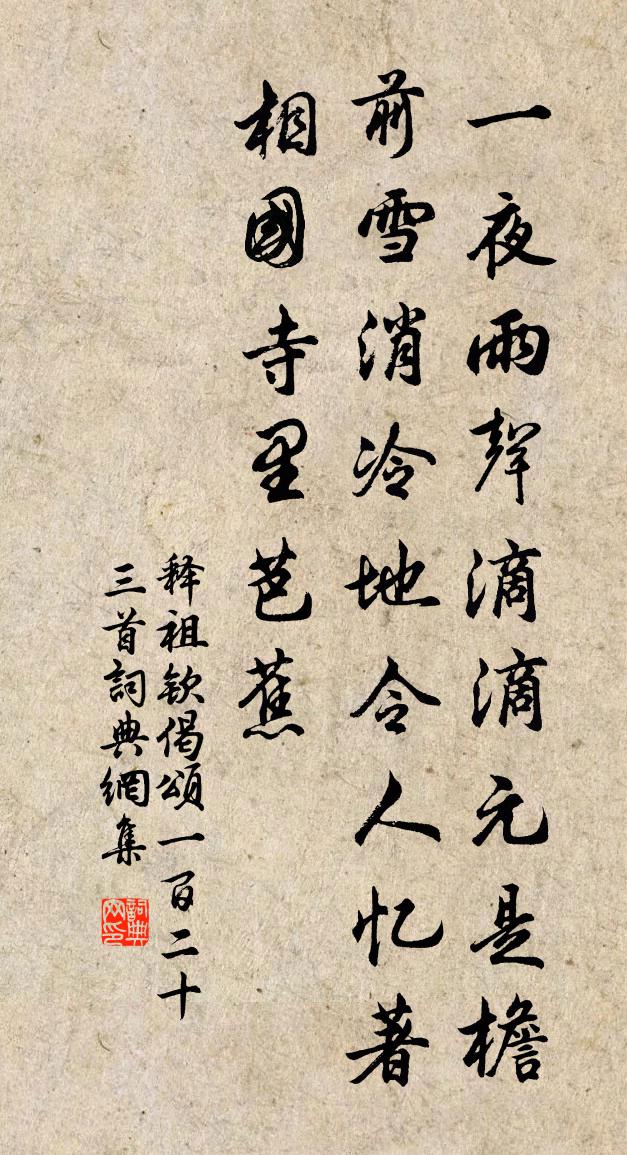 一夜雨聲滴滴元是檐
前雪消冷地令人忆著
相國寺里芭蕉
释祖钦偈頌一百二十
三首詞典網集
詞典網印